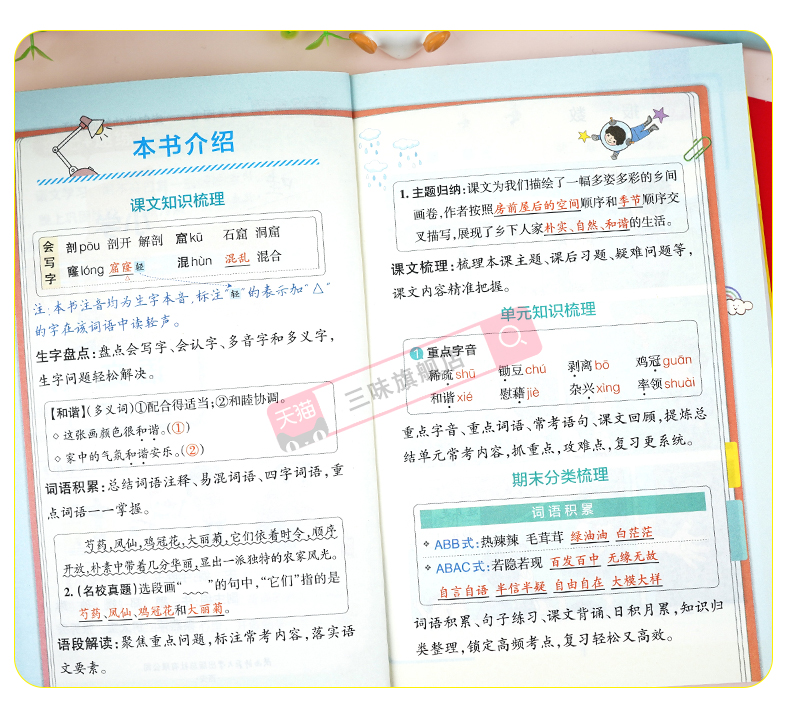 本书介绍
课文知识梳理
会写字
剖pōu 剖开 解剖 窟kū 石窟 洞窟
窿lóng 窟窿 轻 混hùn 混乱 混合
注:本书注音均为生字本音,标注“轻”的表示加“△”
的字在该词语中读轻声。
生字盘点:盘点会写字、会认字、多音字和多义字,
生字问题轻松解决。
【和谐】(多义词)①配合得适当;②和睦协调。
◇ 这张画颜色很和谐。(①)
◇ 家中的气氛和谐安乐。(②)
词语积累:总结词语注释、易混词语、四字词语,重
点词语一一掌握。
芍药,凤仙,鸡冠花,大丽菊,它们依着时令,顺序
开放,朴素中带着几分华丽,显出一派独特的农家风光。
2.(名校真题)选段画“﹏﹏”的句中,“它们”指的是
芍药、凤仙、鸡冠花和大丽菊。
语段解读:聚焦重点问题,标注常考内容,落实语
文要素。
1.主题归纳:课文为我们描绘了一幅多姿多彩的乡间
画卷,作者按照房前屋后的空间顺序和季节顺序交
叉描写,展现了乡下人家朴实、自然、和谐的生活。
课文梳理:梳理本课主题、课后习题、疑难问题等,
课文内容精准把握。
单元知识梳理
1 重点字音
稀疏shū 锄豆chú 剥离bō 鸡冠guān
和谐xié 慰藉jiè 杂兴xìng 率领shuài
重点字音、重点词语、常考语句、课文回顾,提炼总
结单元常考内容,抓重点,攻难点,复习更系统。
期末分类梳理
词语积累
ABB式:热辣辣 毛茸茸 绿油油 白茫茫
ABAC式:若隐若现 百发百中 无缘无故
自言自语 半信半疑 自由自在 大模大样
词语积累、句子练习、课文背诵、日积月累,知识归
类整理,锁定高频考点,复习轻松又高效。
天猫 三味旗舰店